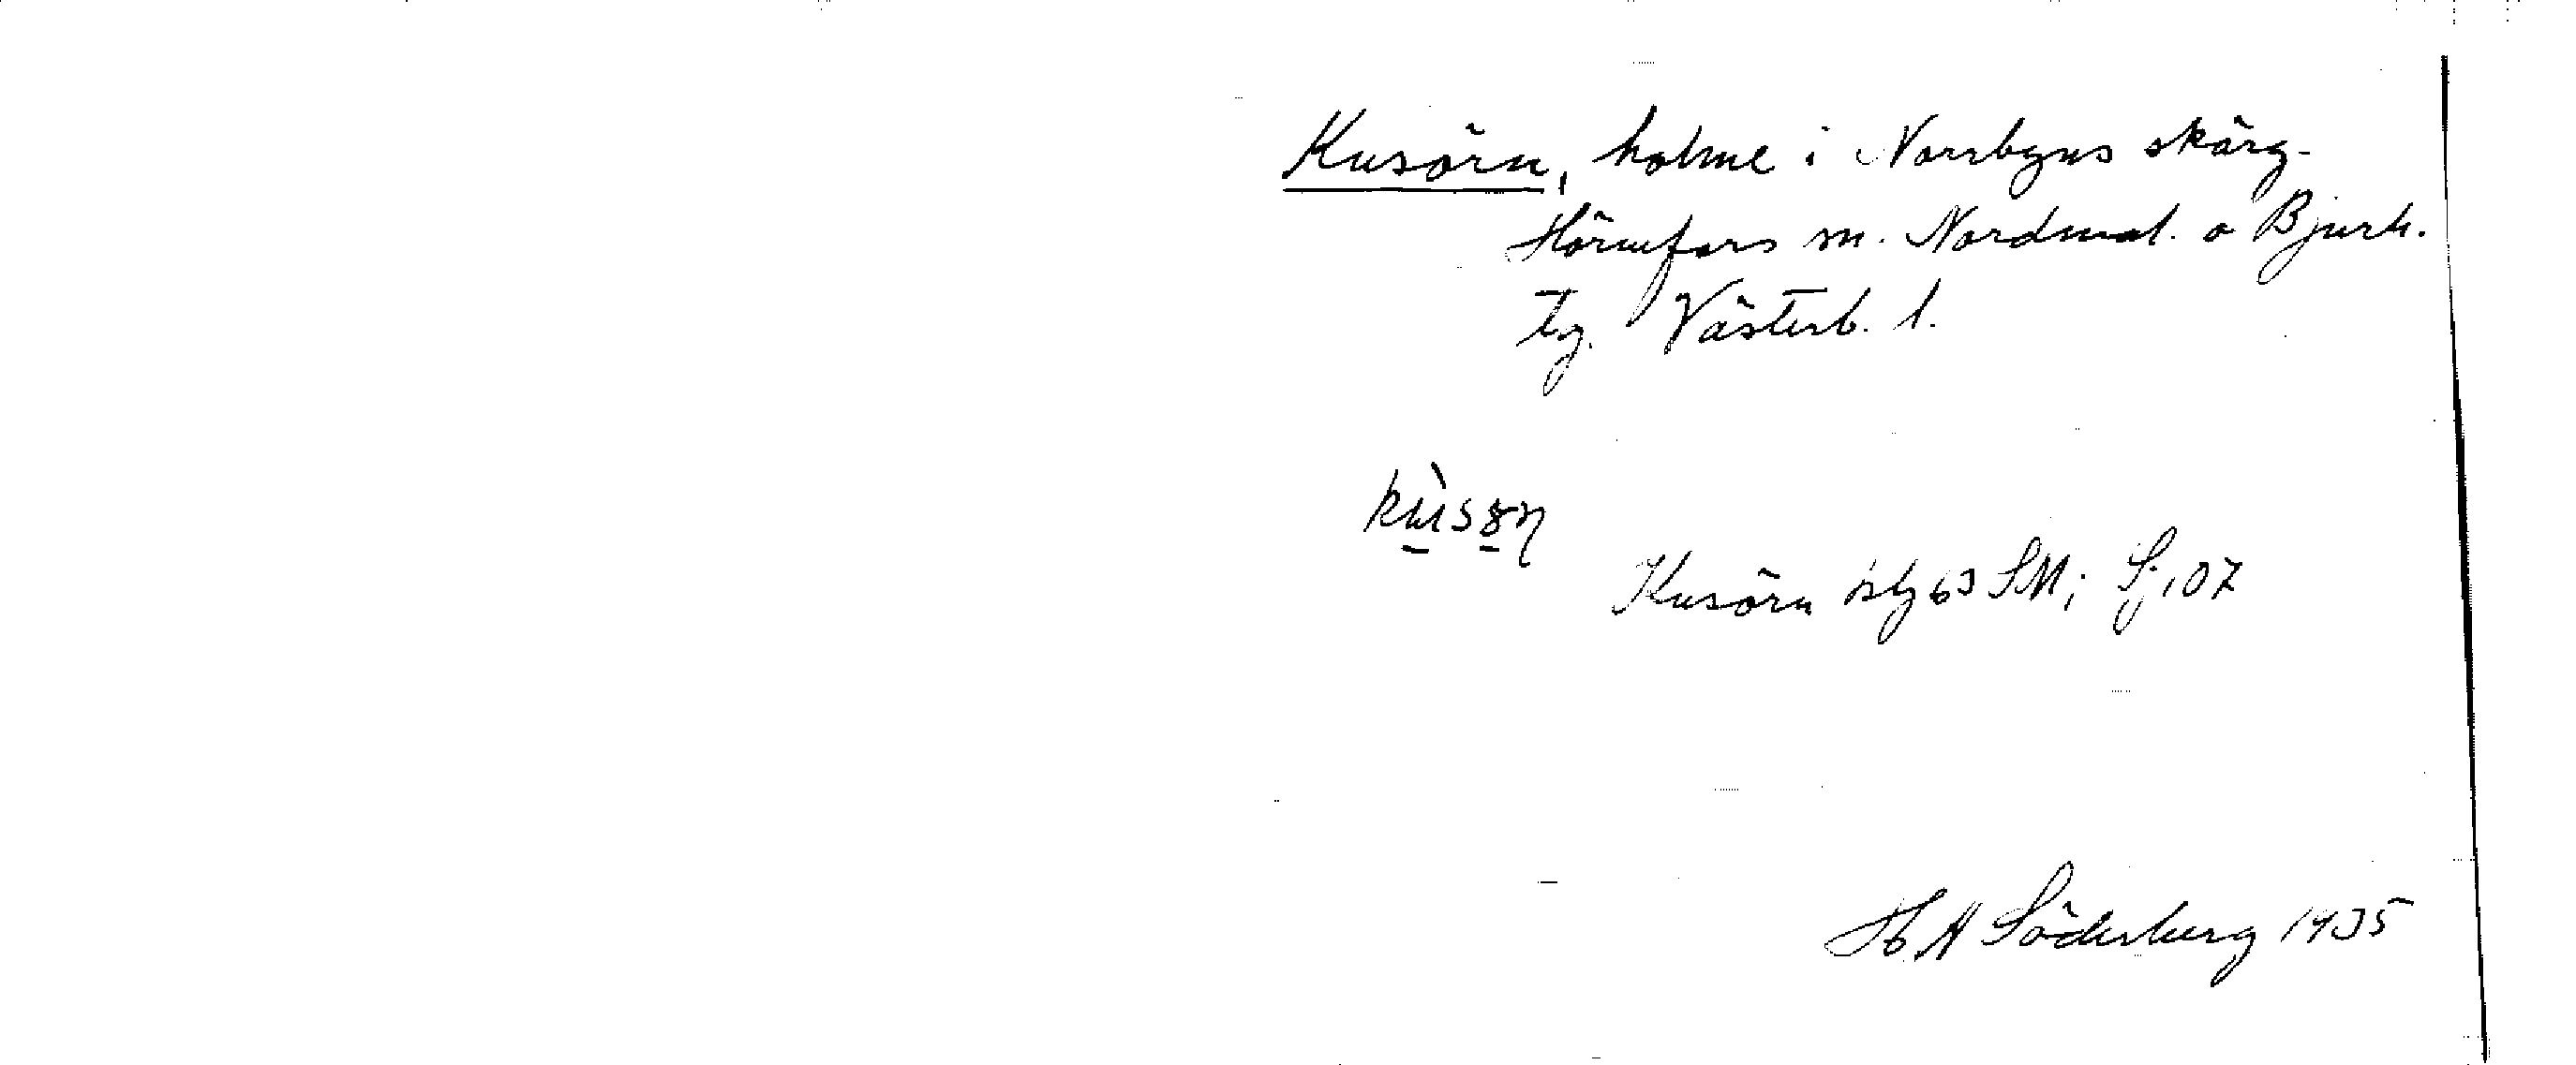 Kusörn, holme i Norrbyns skärg.
Hörnefors sn. Nordmal. o Bjurh.
tg. Västerb. l.
Kusörn 63 SM; Sj 107
H A Söderberg 1935